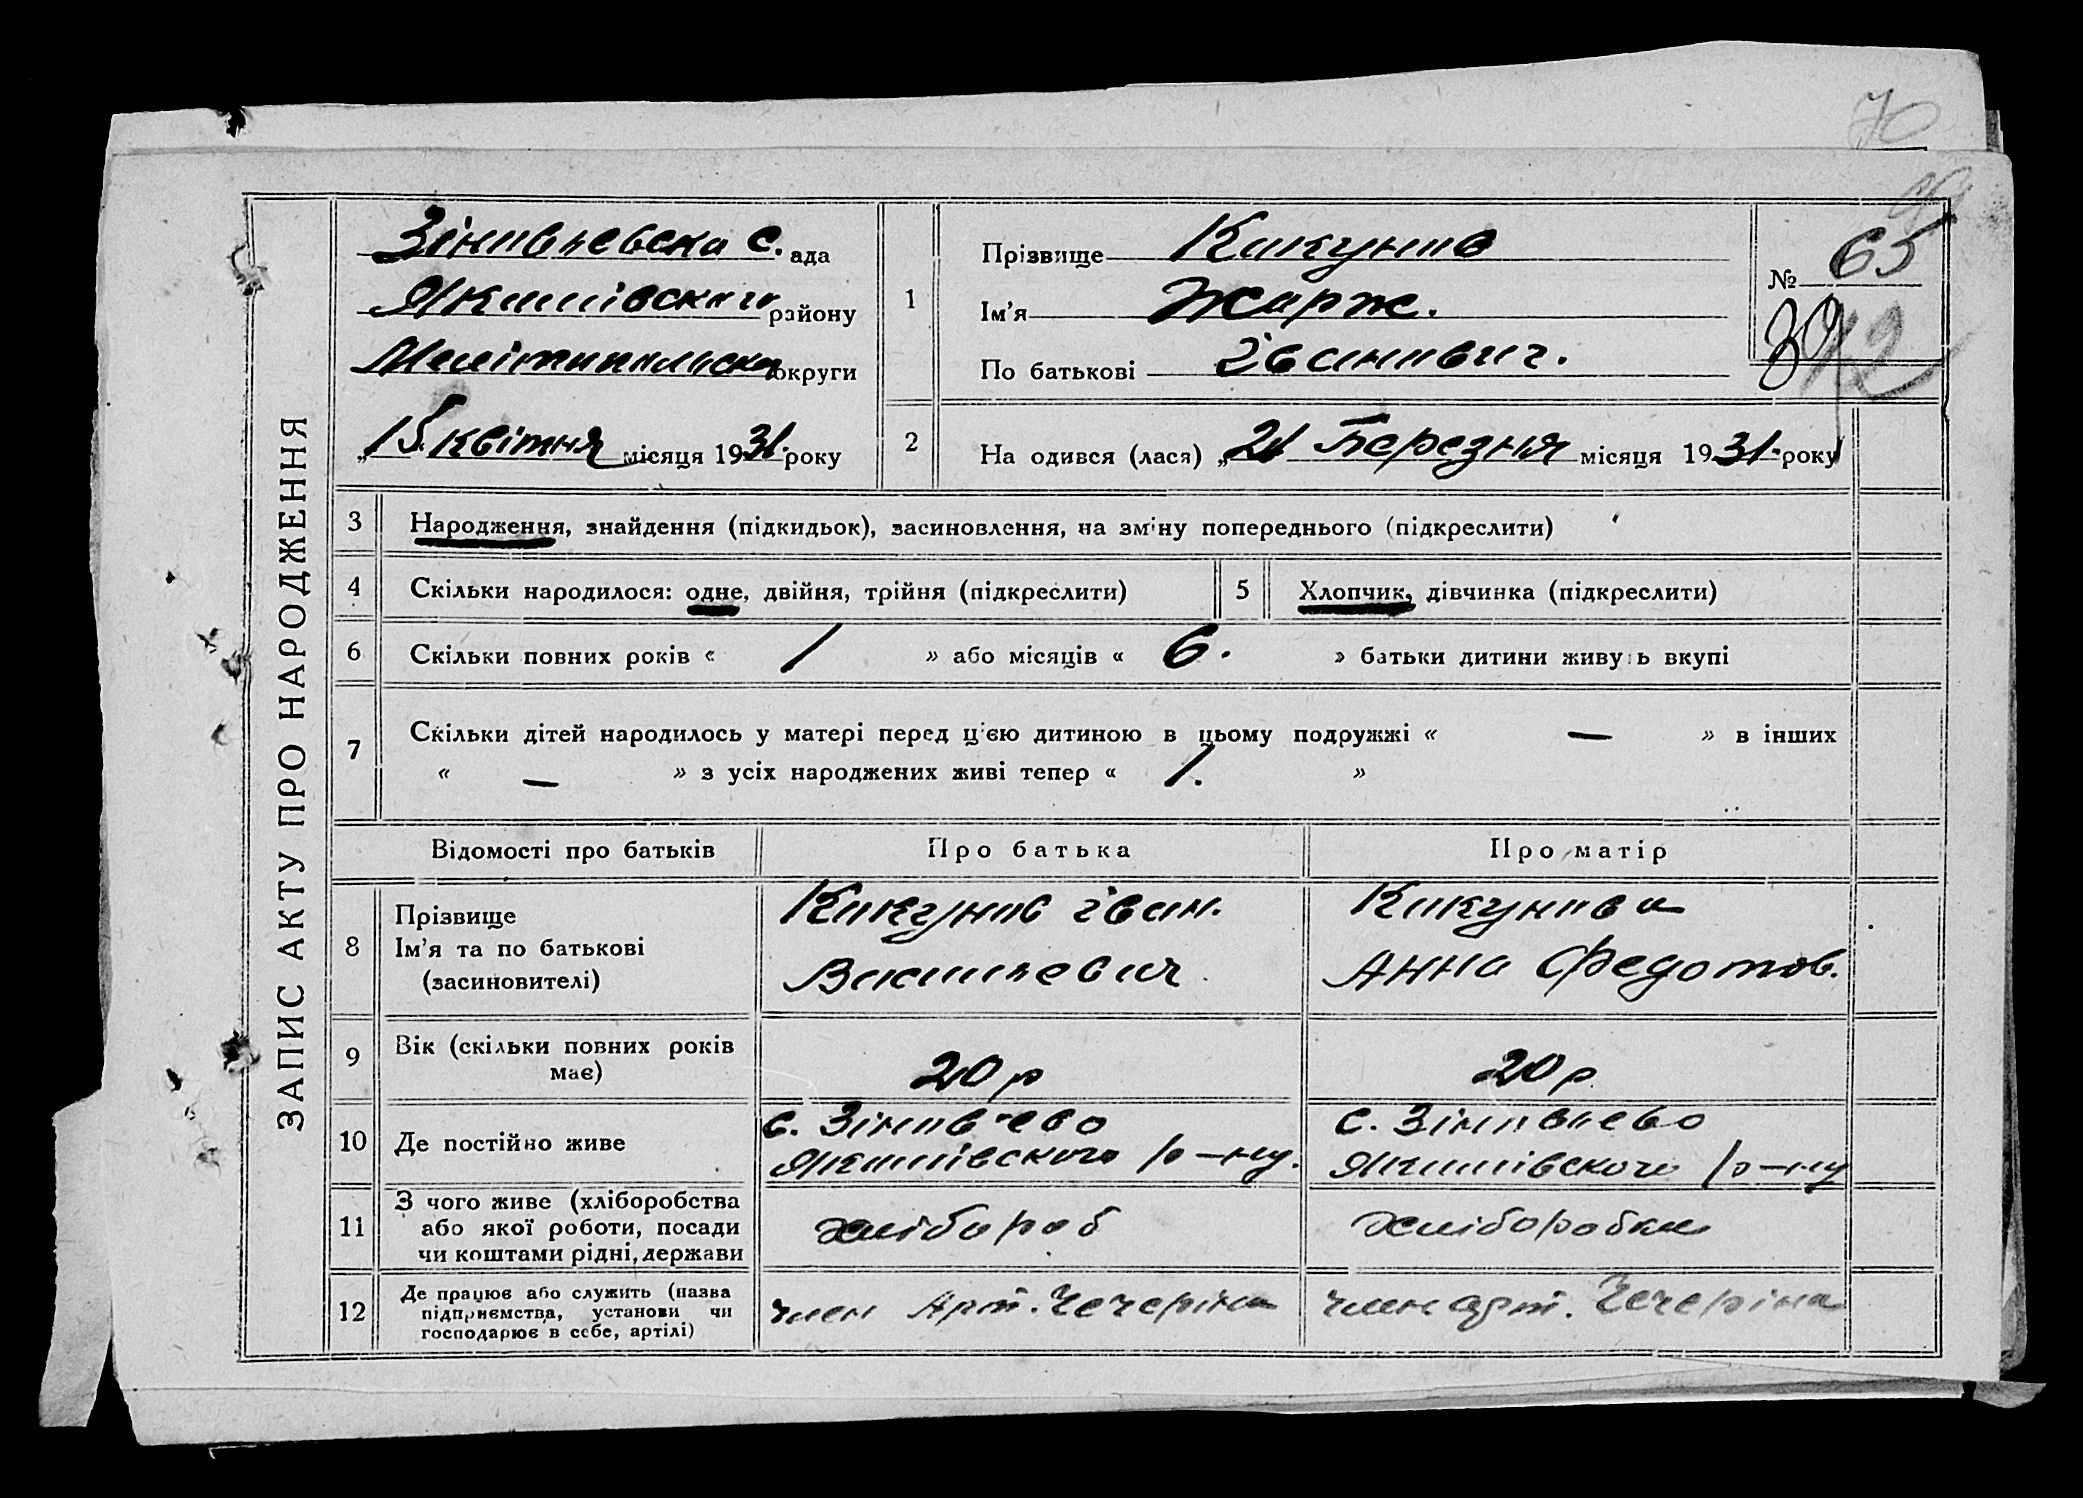 70
ЗАПИС АКТУ ПРО НАРОДЖЕННЯ
Зіновьевська С.ада
Якимівського району
Мелітопольської округи
„15 квітня місяця 1931 року
1
Прізвище Кокунов
Ім’я Жорж.
По батькові Іванович.
№ 65
39
42
2
На одився (лася) „21 Березня місяця 1931. року
3 Народження, знайдення (підкидьок), засиновлення, на зміну попереднього (підкреслити)
4 Скільки народилося: одне, двійня, трійня (підкреслити)
5 Хлопчик, дівчинка (підкреслити)
6 Скільки повних років « 1 » або місяців « 6. » батьки дитини живуть вкупі
7 Скільки дітей народилось у матері перед цією дитиною в цьому подружжі « — » в інших
« — » з усіх народжених живі тепер « 1. »
Відомості про батьків Про батька Про матір
8 Прізвище
Ім’я та по батькові
(засиновителі)
Кокунов Іван.
Васильевич
Кокунова
Анна Федотов.
9 Вік (скільки повних років
має)
20 р
20 р
10 Де постійно живе
с. Зіновьево
Якимівського р-ну.
с. Зіновьево
Якимівського р-ну
11 З чого живе (хліборобства
або якої роботи, посади
чи коштами рідні, держави
хлібороб
хліборобка
12 Де працює або служить (назва
підприємства, установи чи
господарює в себе, артілі)
член Арт. Чечеріна
член арт. Чечеріна